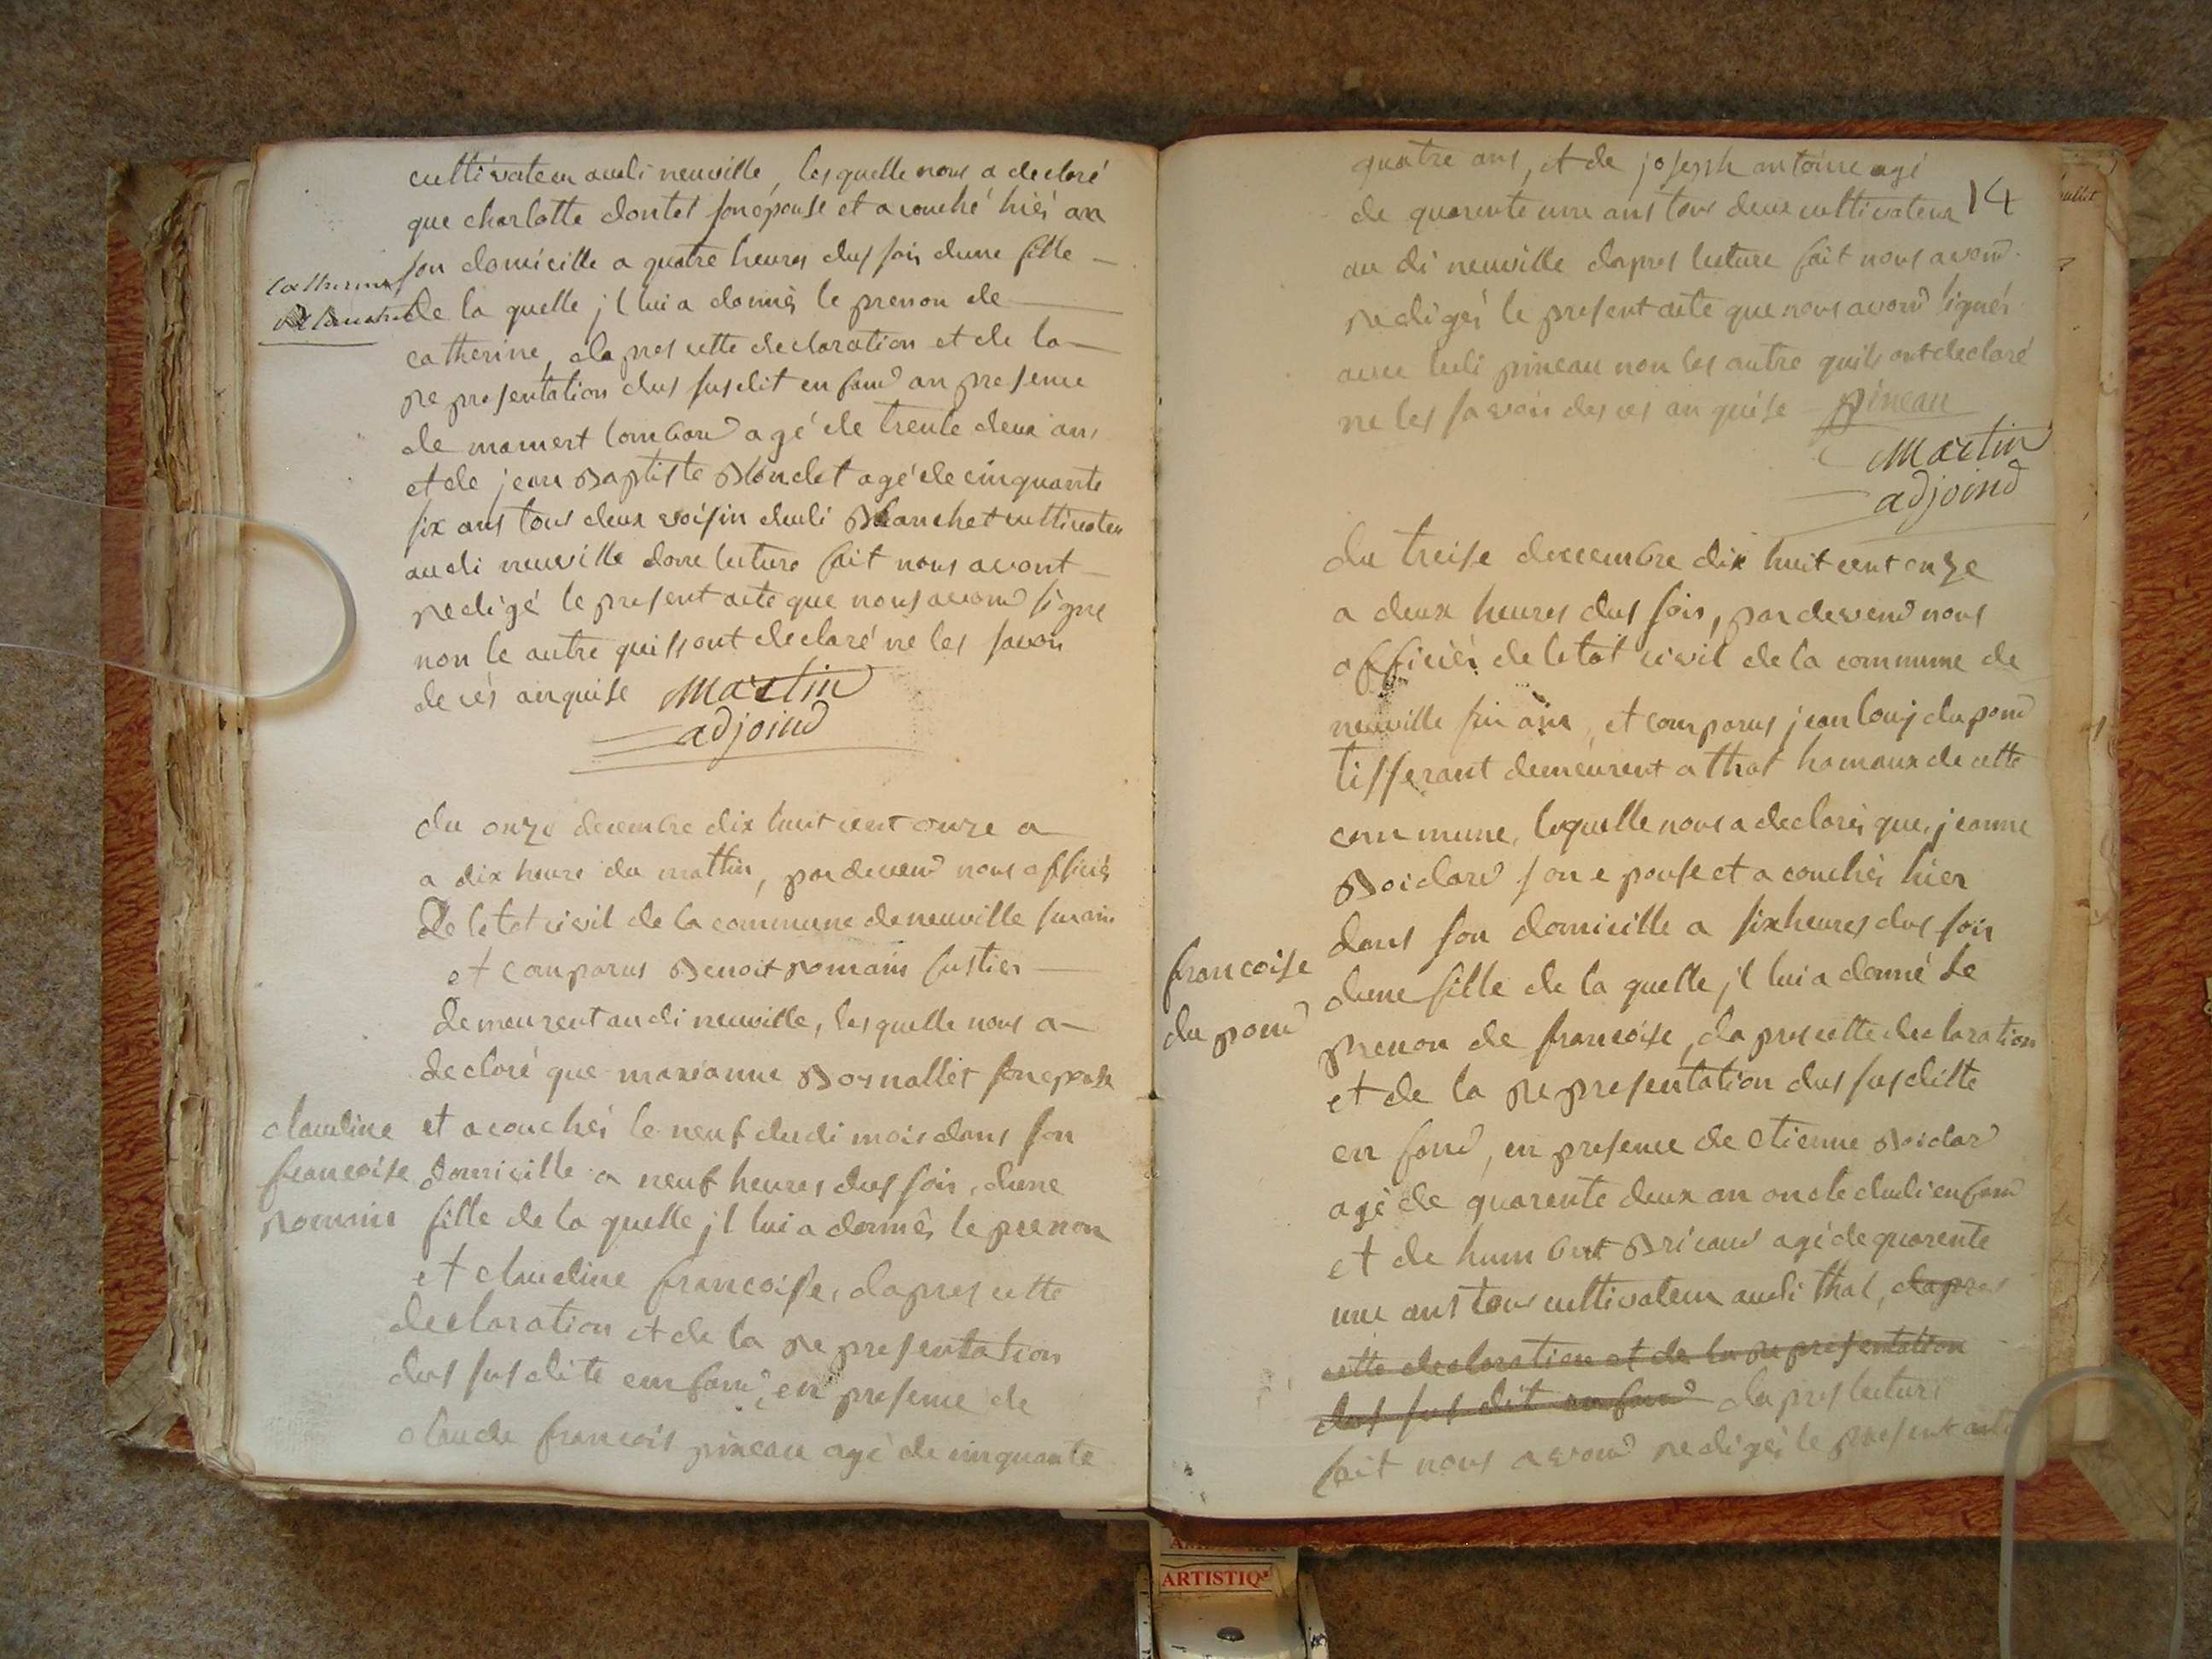 cultivateur audi neuville, lesquelle nous a declaré
que charlotte dontet son epouse et acouché hiér an
son domicille a quatre heures dus soir dune fille
Catherine
Blanchet
de la quelle jl lui a donnés le prenon de
catherine, dapres cette declaration et de la
representation dus susdit enfand an presence
de mamert lombard agé de trente deux ans
et de jean Baptiste Blondet agé de cinquante
six ans tous deux voisin dudi Blanchet cultivateur
audi neuville donc lecture fait nous avont
redigé le present acte que nous avond signe
non le autre quissont declaré ne les savoir
de cés anquise Martin
adjoind
du onze decembre dix huit cent onze a
a dix heure du mattin, pardevend nous officiés
de letat civil de la commune de neuville sur ain
et comparus Benoit Romain fustier
demeurent audi neuville, lesquelle nous a
declaré que marianne Bornallet son epouse
claudine
francoise
Romain
et acouchés le neuf dudi mois dans son
domicille a neuf heures dus soir, dune
fille de la quelle jl lui a donnés le prenon
et claudine francoise, dapres cette
declaration et de la representation
dus susdite emfand, en presence de
claude francois pineau agé de cinquante
quatre ans, et de joseph antoine agé
de quarente une ans tous deux cultivateur
14
au di neuville dapres lecture fait nous avond
redigés le present acte que nous avond signés
avec ludi pineau non les autre quils ont declaré
ne les savoir des ces anquise pineau
Martin
adjoind
du treise deccembre dix huit cent onze
a deux heures dus soir, pardevend nous
officiér de letat civil de la commune de
neuville sur ain, et comparus jean louis dupond
tisserant demeurent a thol hamaux de cette
commune, lequelle nous a declarés que, jeanne
Boidard son epouse et a couchés hier
dans son domicille a six heures dus soir
francoise
du pond
dune fille de la quelle, jl lui a donné le
prenon de francoise, dapres cette declaration
et de la representation dus susditte
en fand, en presence de etienne Boidard
agé de quarente deux an oncle dudi enfand
et de humbert Bricaud agé de quarente
une ans tous cultivateur audi thol, dapres
cette declaration et de la representation
dus susdit enfand dapres lecture
fait nous avond redigés le present acte
ARTISTIQ